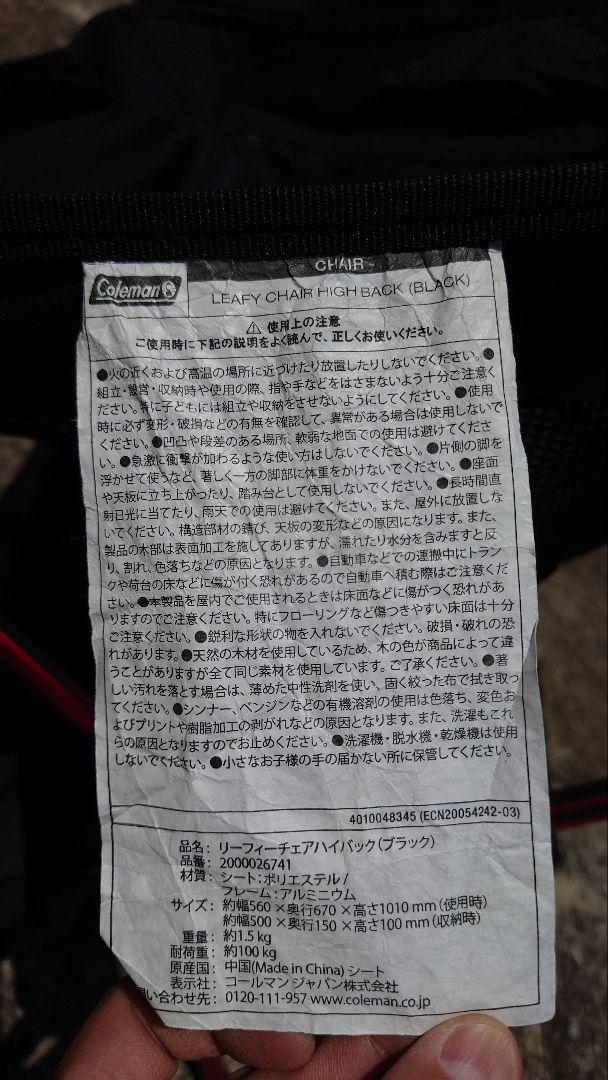 CHAIR
Coleman
LEAFY CHAIR HIGH BACK (BLACK)
⚠ 使用上の注意
ご使用時に下記の説明をよく読んで、正しくお使いください。
●火の近くおよび高温の場所に近づけたり放置したりしないでください。●
組立・設営・収納時や使用の際、指や手などをはさまないよう十分ご注意く
ださい。特に子どもには組立や収納をさせないようにしてください。●使用
時に必ず変形・破損などの有無を確認して、異常がある場合は使用しないで
ください。●凹凸や段差のある場所、軟弱な地面での使用は避けてくださ
い。●急激に衝撃が加わるような使い方はしないでください。●片側の脚を
浮かせて使うなど、著しく一方の脚部に体重をかけないでください。●座面
や天板に立ち上がったり、踏み台として使用しないでください。●長時間直
射日光に当てたり、雨天での使用は避けてください。また、屋外に放置しな
いでください。構造部材の錆び、天板の変形などの原因になります。また、
製品の木部は表面加工を施してありますが、濡れたり水分を含みますと反
り、割れ、色落ちなどの原因となります。●自動車などでの運搬中にトラン
クや荷台の床などに傷が付く恐れがあるので自動車へ積む際はご注意くだ
さい。●本製品を屋内でご使用されるときは床面などに傷がつく恐れがあ
りますのでご注意ください。特にフローリングなど傷つきやすい床面は十分
ご注意ください。●鋭利な形状の物を入れないでください。破損・破れの恐
れがあります。●天然の木材を使用しているため、木の色が商品によって違
うことがありますが全て同じ素材を使用しています。ご了承ください。●著
しい汚れを落とす場合は、薄めた中性洗剤を使い、固く絞った布で拭き取っ
てください。●シンナー、ベンジンなどの有機溶剤の使用は色落ち、変色お
よびプリントや樹脂加工の剥がれなどの原因となります。また、洗濯もこれ
らの原因となりますのでお止めください。●洗濯機・脱水機・乾燥機は使用
しないでください。●小さなお子様の手の届かない所に保管してください。
4010048345 (ECN20054242-03)
品名: リーフィーチェアハイバック(ブラック)
品番: 2000026741
材質: シート:ポリエステル/
フレーム:アルミニウム
サイズ: 約幅560×奥行670×高さ1010mm(使用時)
約幅500×奥行150×高さ100mm(収納時)
重量: 約1.5kg
耐荷重: 約100kg
原産国: 中国(Made in China) シート
表示社: コールマン ジャパン株式会社
い合わせ先: 0120-111-957 www.coleman.co.jp